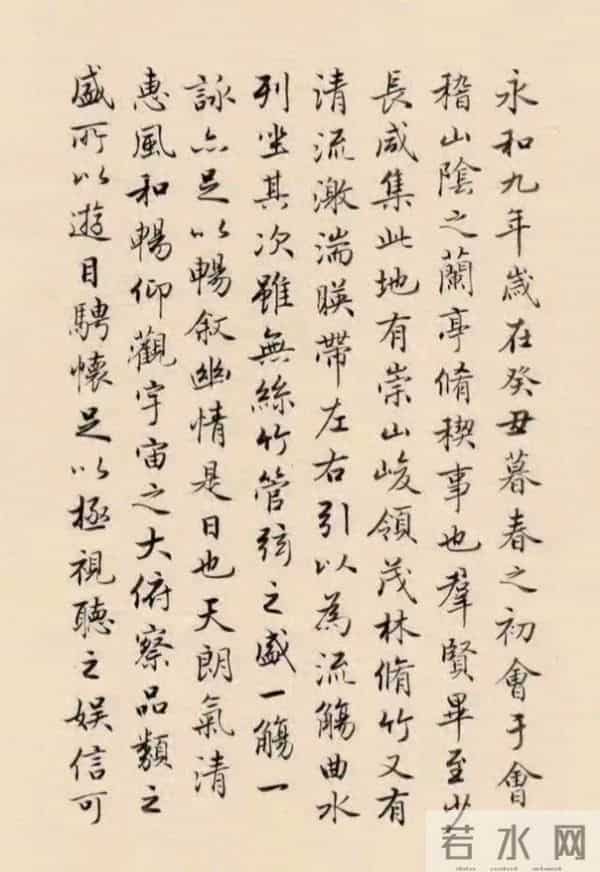 永和九年歲在癸丑暮春之初會于會
稽山陰之蘭亭脩稧事也羣賢畢至少
長咸集此地有崇山峻領茂林脩竹又有
清流激湍暎帶左右引以為流觴曲水
列坐其次雖無絲竹管弦之盛一觴一
詠亦足以暢敘幽情是日也天朗氣清
惠風和暢仰觀宇宙之大俯察品類之
盛所以遊目騁懷足以極視聽之娛信可
若水网